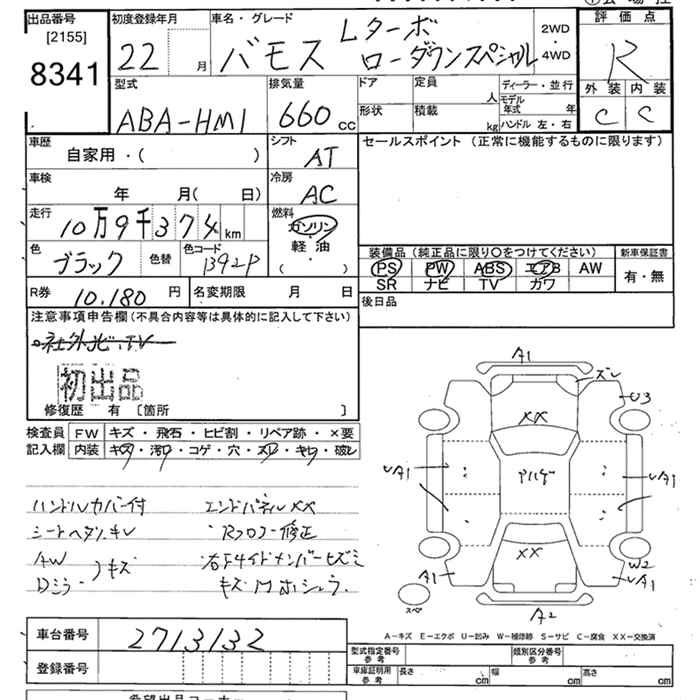 出品番号
[2155]
8341
初度登録年月
22 月
車名・グレード
バモス Lターボ
ローダウンスペシャル
2WD
・
4WD
評価点
R
外装 内装
C C
型式
ABA-HM1
排気量
660 cc
ドア
定員
人
形状
積載
kg
ディーラー・並行
モデル
年式 年
ハンドル 左・右
車歴
自家用・( )
シフト
AT
セールスポイント (正常に機能するものに限ります)
車検
年 月( 日)
冷房
AC
走行
10万9千374 km
燃料
ガソリン
軽・油
( )
色
ブラック
色替
色コード
B92P
装備品 (純正品に限り○をつけてください)
PS PW ABS エアB AW
SR ナビ TV カワ
新車保証書
有・無
R券
10,180 円
名変期限 月 日
後日品
注意事項申告欄(不具合内容等は具体的に記入して下さい)
社外ナビ・TV
初出品
修復歴 有 [箇所 ]
検査員
記入欄
FW キズ・飛石・ヒビ割・リペア跡・×要
内装 キズ・汚れ・コゲ・穴・スレ・キレ・破レ
ハンドルカバー付
シートヘタリ、キレ
AW
Dミラー
キズ
エンドパネルXX
Rフロアー修正
右Fサイドメンバーヒズミ
キズ
A1
ズレ
U3
XX
A1
アルゲ
A1
XX
A1
W2
A1
スペ
A2
A－キズ E－エクボ U－凹み W－補修跡 S－サビ C－腐食 XX－交換済
車台番号
2713132
登録番号
型式指定番号
参考
類別区分番号
参考
車庫証明用
参考
長さ cm
幅 cm
高さ cm
希望出品コーナー